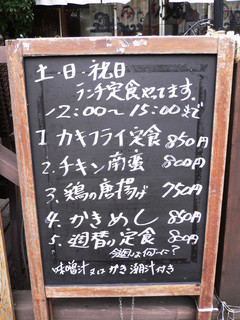 土・日・祝日
ランチ定食やてます。
12:00〜15:00まで
1. カキフライ定食 850円
2. チキン南蛮 800円
3. 鶏の唐揚げ 750円
4. かきめし 850円
5. 週替り定食 800円
今週は何かに?
味噌汁又はかき潮汁付き